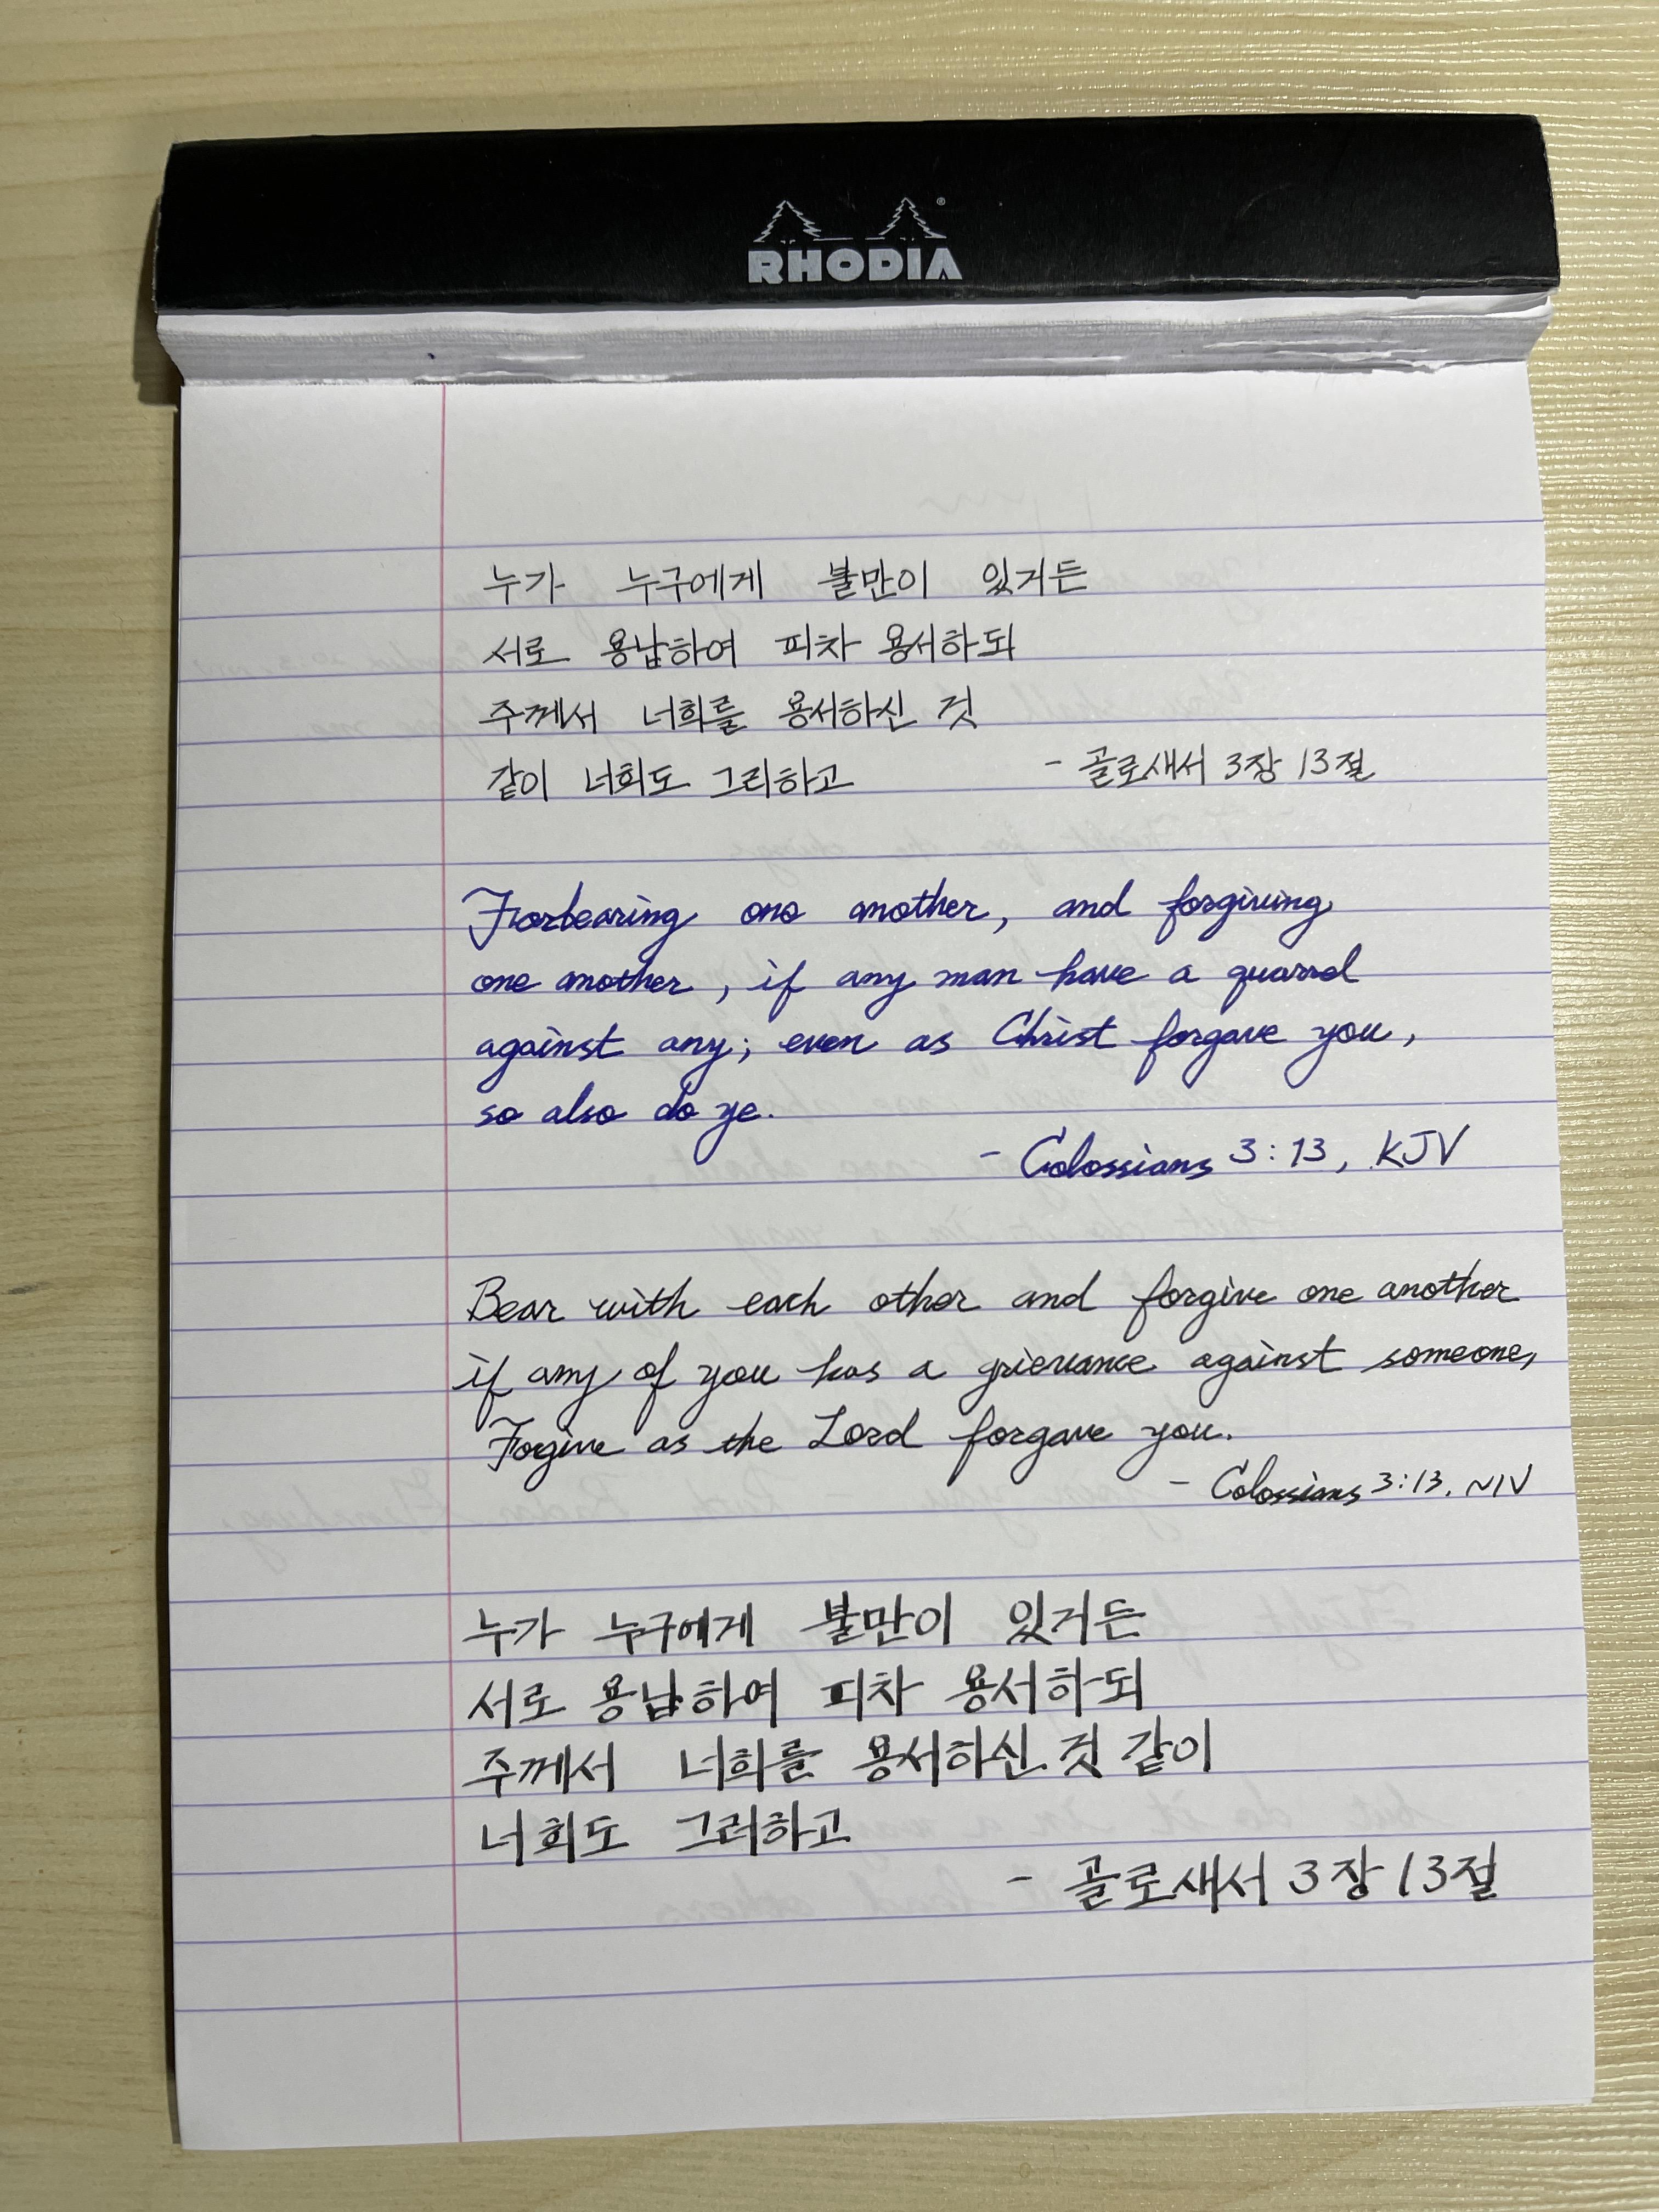 RHODIA
누가 누구에게 불만이 있거든
서로 용납하여 피차 용서하되
주께서 너희를 용서하신 것
같이 너희도 그리하고 - 골로새서 3장 13절
Forbearing one another, and forgiving
one another, if any man have a quarrel
against any; even as Christ forgave you,
so also do ye.
- Colossians 3:13, KJV
Bear with each other and forgive one another
if any of you has a grievance against someone,
Forgive as the Lord forgave you.
- Colossians 3:13, NIV
누가 누구에게 불만이 있거든
서로 용납하여 피차 용서하되
주께서 너희를 용서하신 것 같이
너희도 그러하고
- 골로새서 3장 13절